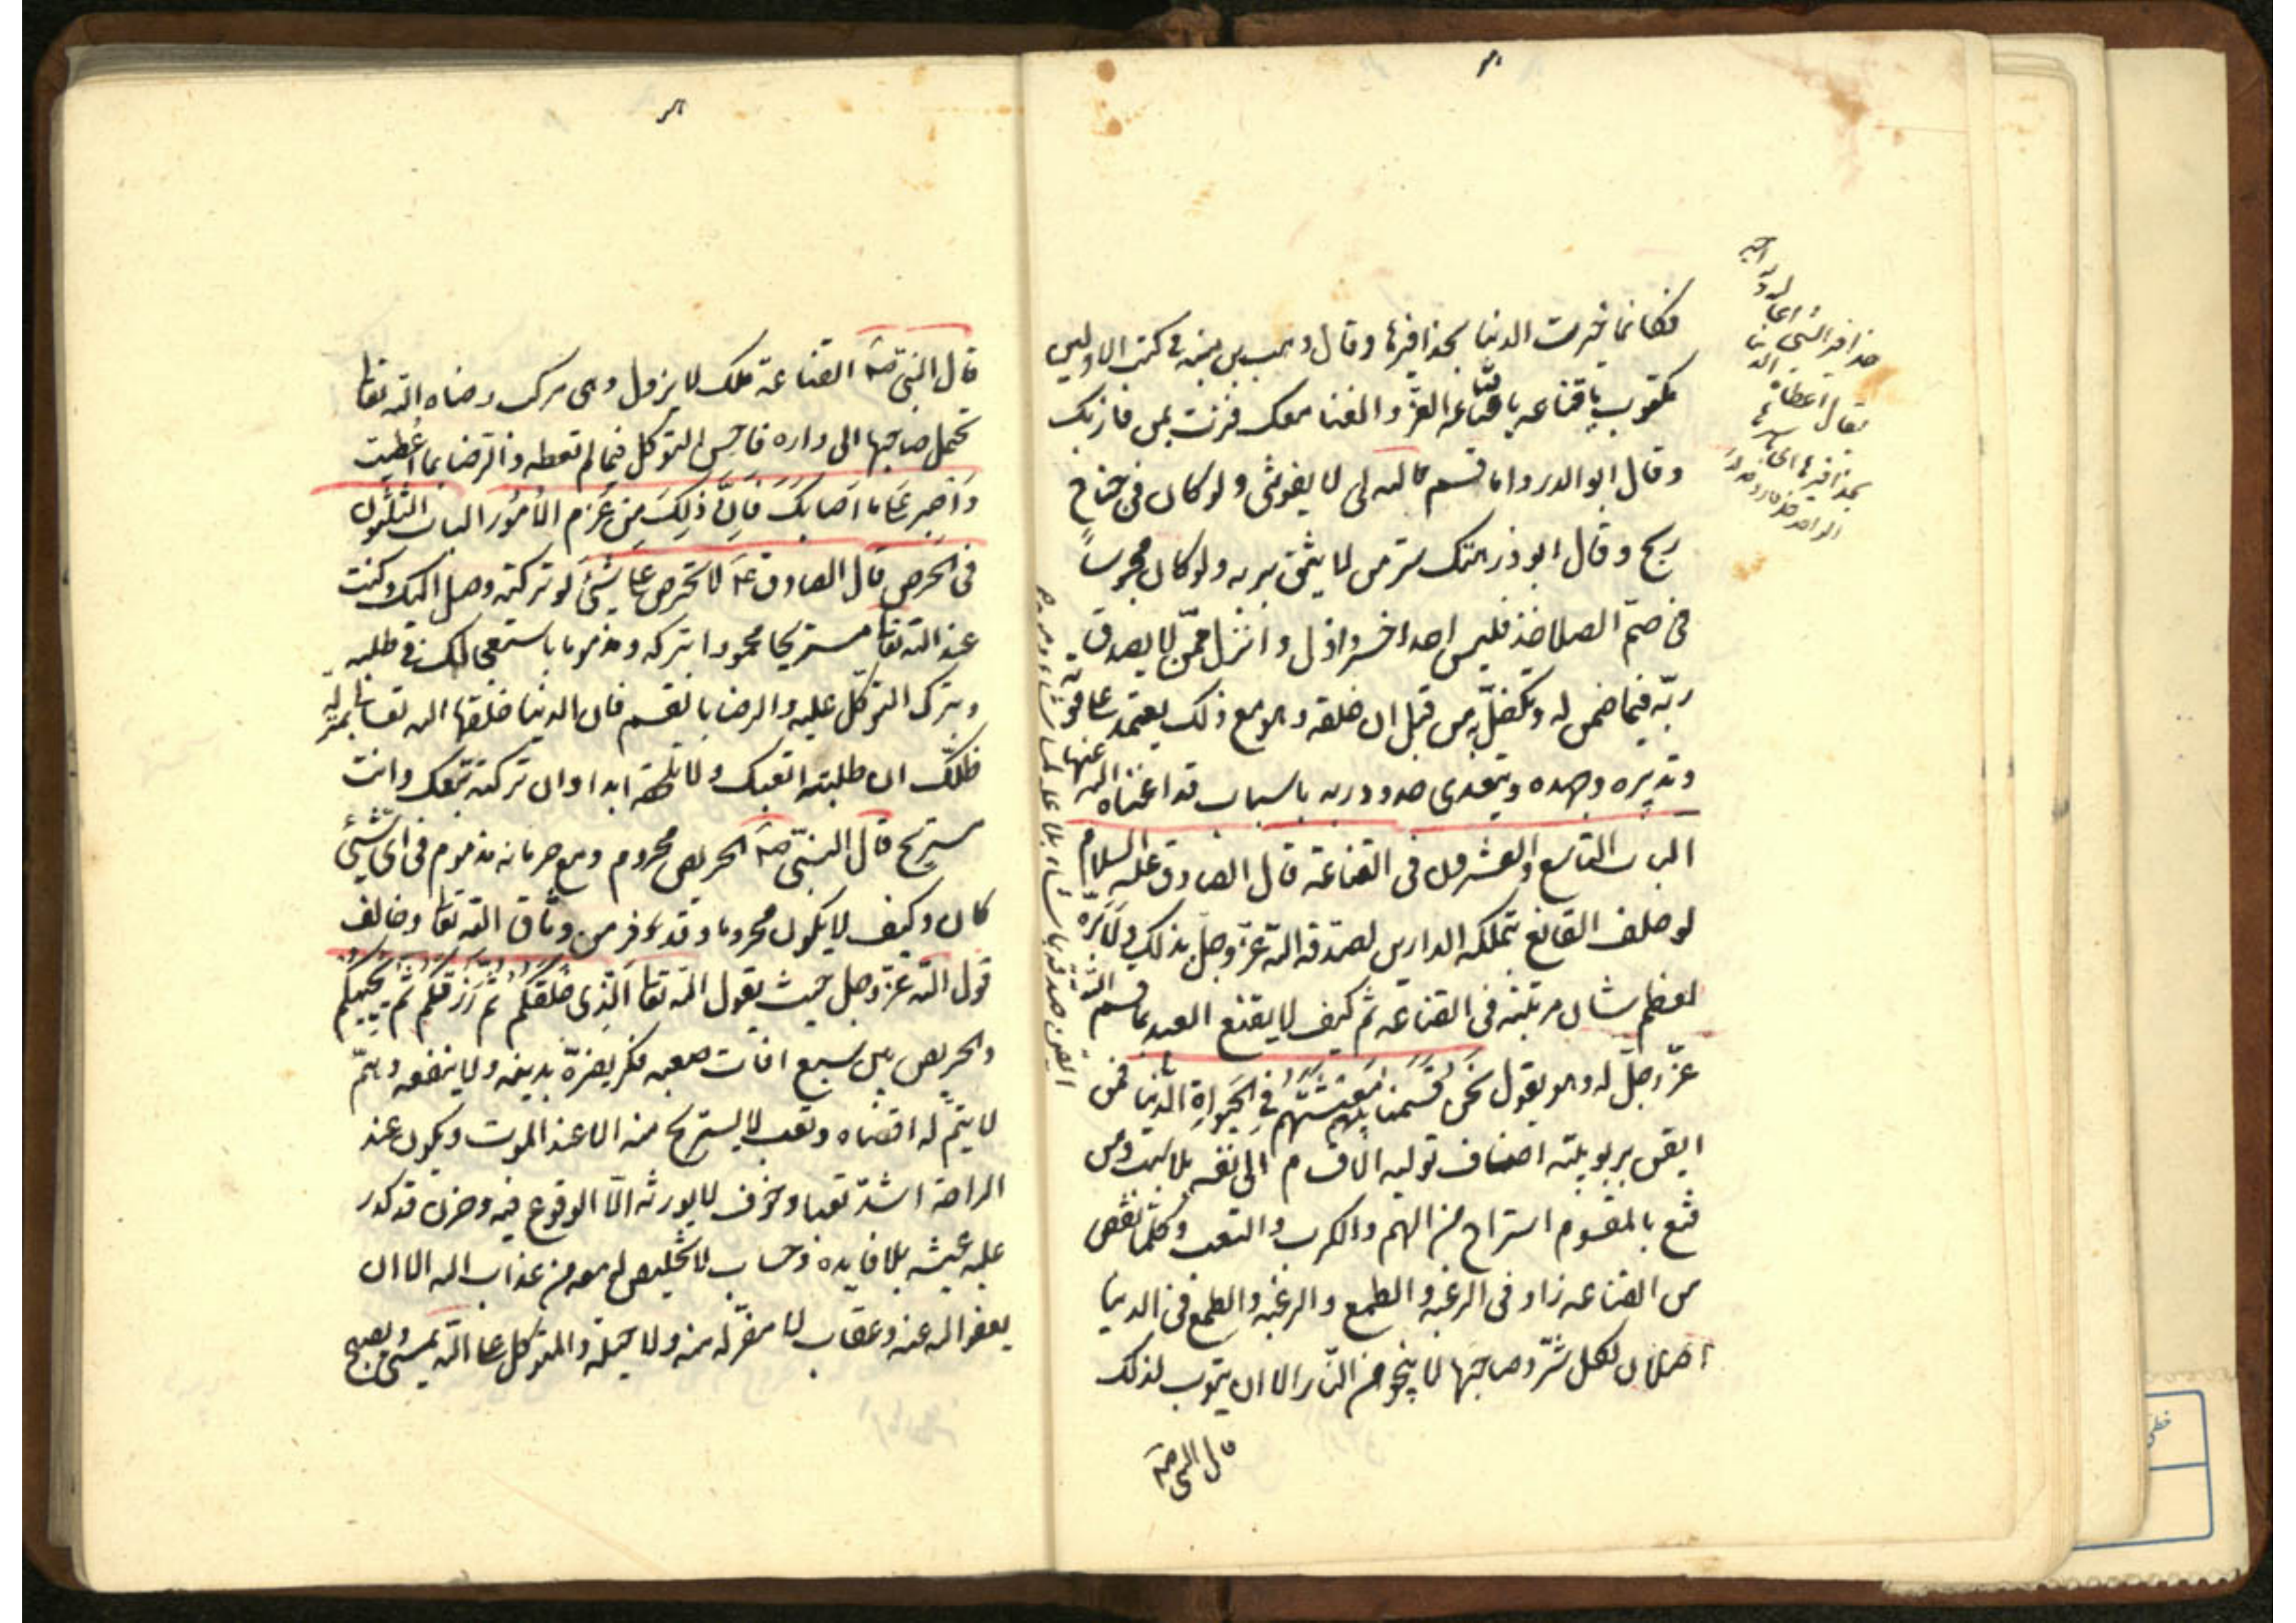 فكانما خيرت الدنيا بحذافيرها وقال وهب بن منبه في كتب الاولين
مكتوب يا قناعه العز والغنا معك فزت بمن فاز بك
وقال ابو الدرداء ما قسم الله لى لا يفوتنى ولو كان فى جناح
ريح وقال ابو ذر هتك ستر من لا يثق بربه ولو كان محبوساً
فى صمّ الصلاخذ فليس احد اخسر واذل وانزل ممّن لا يصدق
ربّه فيما ضمن له وتكفّل به من قبل ان خلقه وهو مع ذلك يعتمد على قوته
وتدبيره وجهده ويتعدى حدود ربه باسباب قد اغناه الله عنها
الباب التاسع والعشرون فى القناعة قال الصادق عليه السلام
لو حلف القانع بتملكه الدارين لصدقه الله عزّ وجلّ بذلك ولابرّه
لعظم شان مرتبته فى القناعه ثم كيف لا يقنع العبد بما قسم الله
عزّ وجلّ له وهو يقول نَحنُ قَسَمنا بَينَهُم مَعيشَتَهُم فِى الحَيوةِ الدُّنيا فمن
ايقن بربوبيته اضاف تولية الاقسام الى نفسه بلا سبب ومن
قنع بالمقسوم استراح من الهم والكرب والتعب وكلّما نقص
من القناعه زاد فى الرغبه والطمع والرغبه والطمع فى الدنيا
اصلان لكل شرّ وصاحبها لا ينجو من النّار الا ان يتوب لذلك
قال النبى صه
حذافير الشى
يقال اعطاه الدنيا
بحذافيرها اى باسرها
قال النبىّ صه القناعة ملك لا يزول وهى مركب رضاء الله تعالى
تحمل صاحبها الى داره فاحسن التوكل فيما لم تعطه والرضا بما اُعطيت
وَاصبِر عَلى ما اَصابَكَ فَاِنَّ ذلِكَ مِن عَزمِ الاُمُور الباب الثلثون
فى الحرص قال الصادق ع لا تحرص على شئ لو تركته وصل اليك وكنت
عند الله تعالى مستريحا محمودا بتركه ومذموما باستعجالك فى طلبه
وبترك التوكّل عليه والرضا بالقسم فان الدنيا خلقها الله تعالى بمنزلة
ظلّك ان طلبته اتعبك ولا تلحقه ابدا وان تركته تبعك وانت
مستريح قال النبىّ صه الحريص محروم ومع حرمانه مذموم فى اىّ شئ
كان وكيف لا يكون محروما وقد فر من وثاق الله تعالى وخالف
قول الله عزّ وجل حيث يقول الله تعالى اَلَّذى خَلَقَكُم ثُمَّ رَزَقَكُم ثُمَّ يُميتُكُم ثُمَّ يُحييكُم
والحريص بين سبع آفات صعبه فكر يضرّ بدينه ولا ينفعه وهمّ
لا يتمّ له اقصاه وتعب لا يستريح منه الا عند الموت ويكون عند
الراحة اشدّ تعبا وخوف لا يورثه الّا الوقوع فيه وحزن قد كدر
عليه عيشه بلا فايده وحساب لا تخليص له معه من عذاب الله الا ان
يعفو الله عنه وعقاب لا مفرّ له منه ولا حيلة والمتوكل على الله يمسى ويصبح